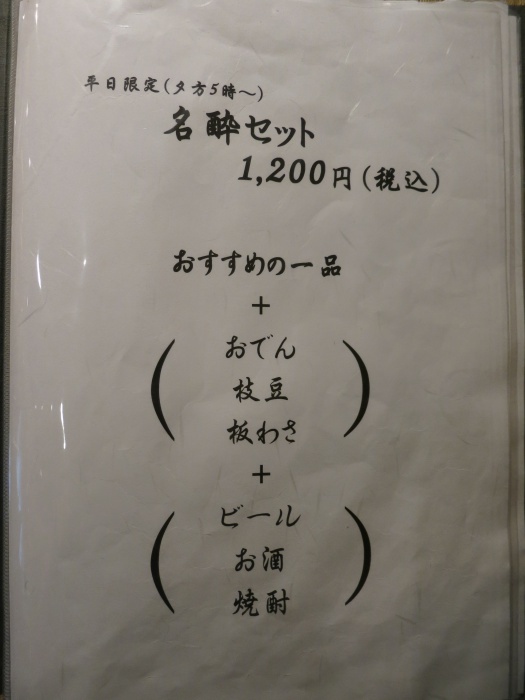 平日限定(夕方5時〜)
名酔セット
1,200円(税込)
おすすめの一品
+
おでん
枝豆
板わさ
+
ビール
お酒
焼酎